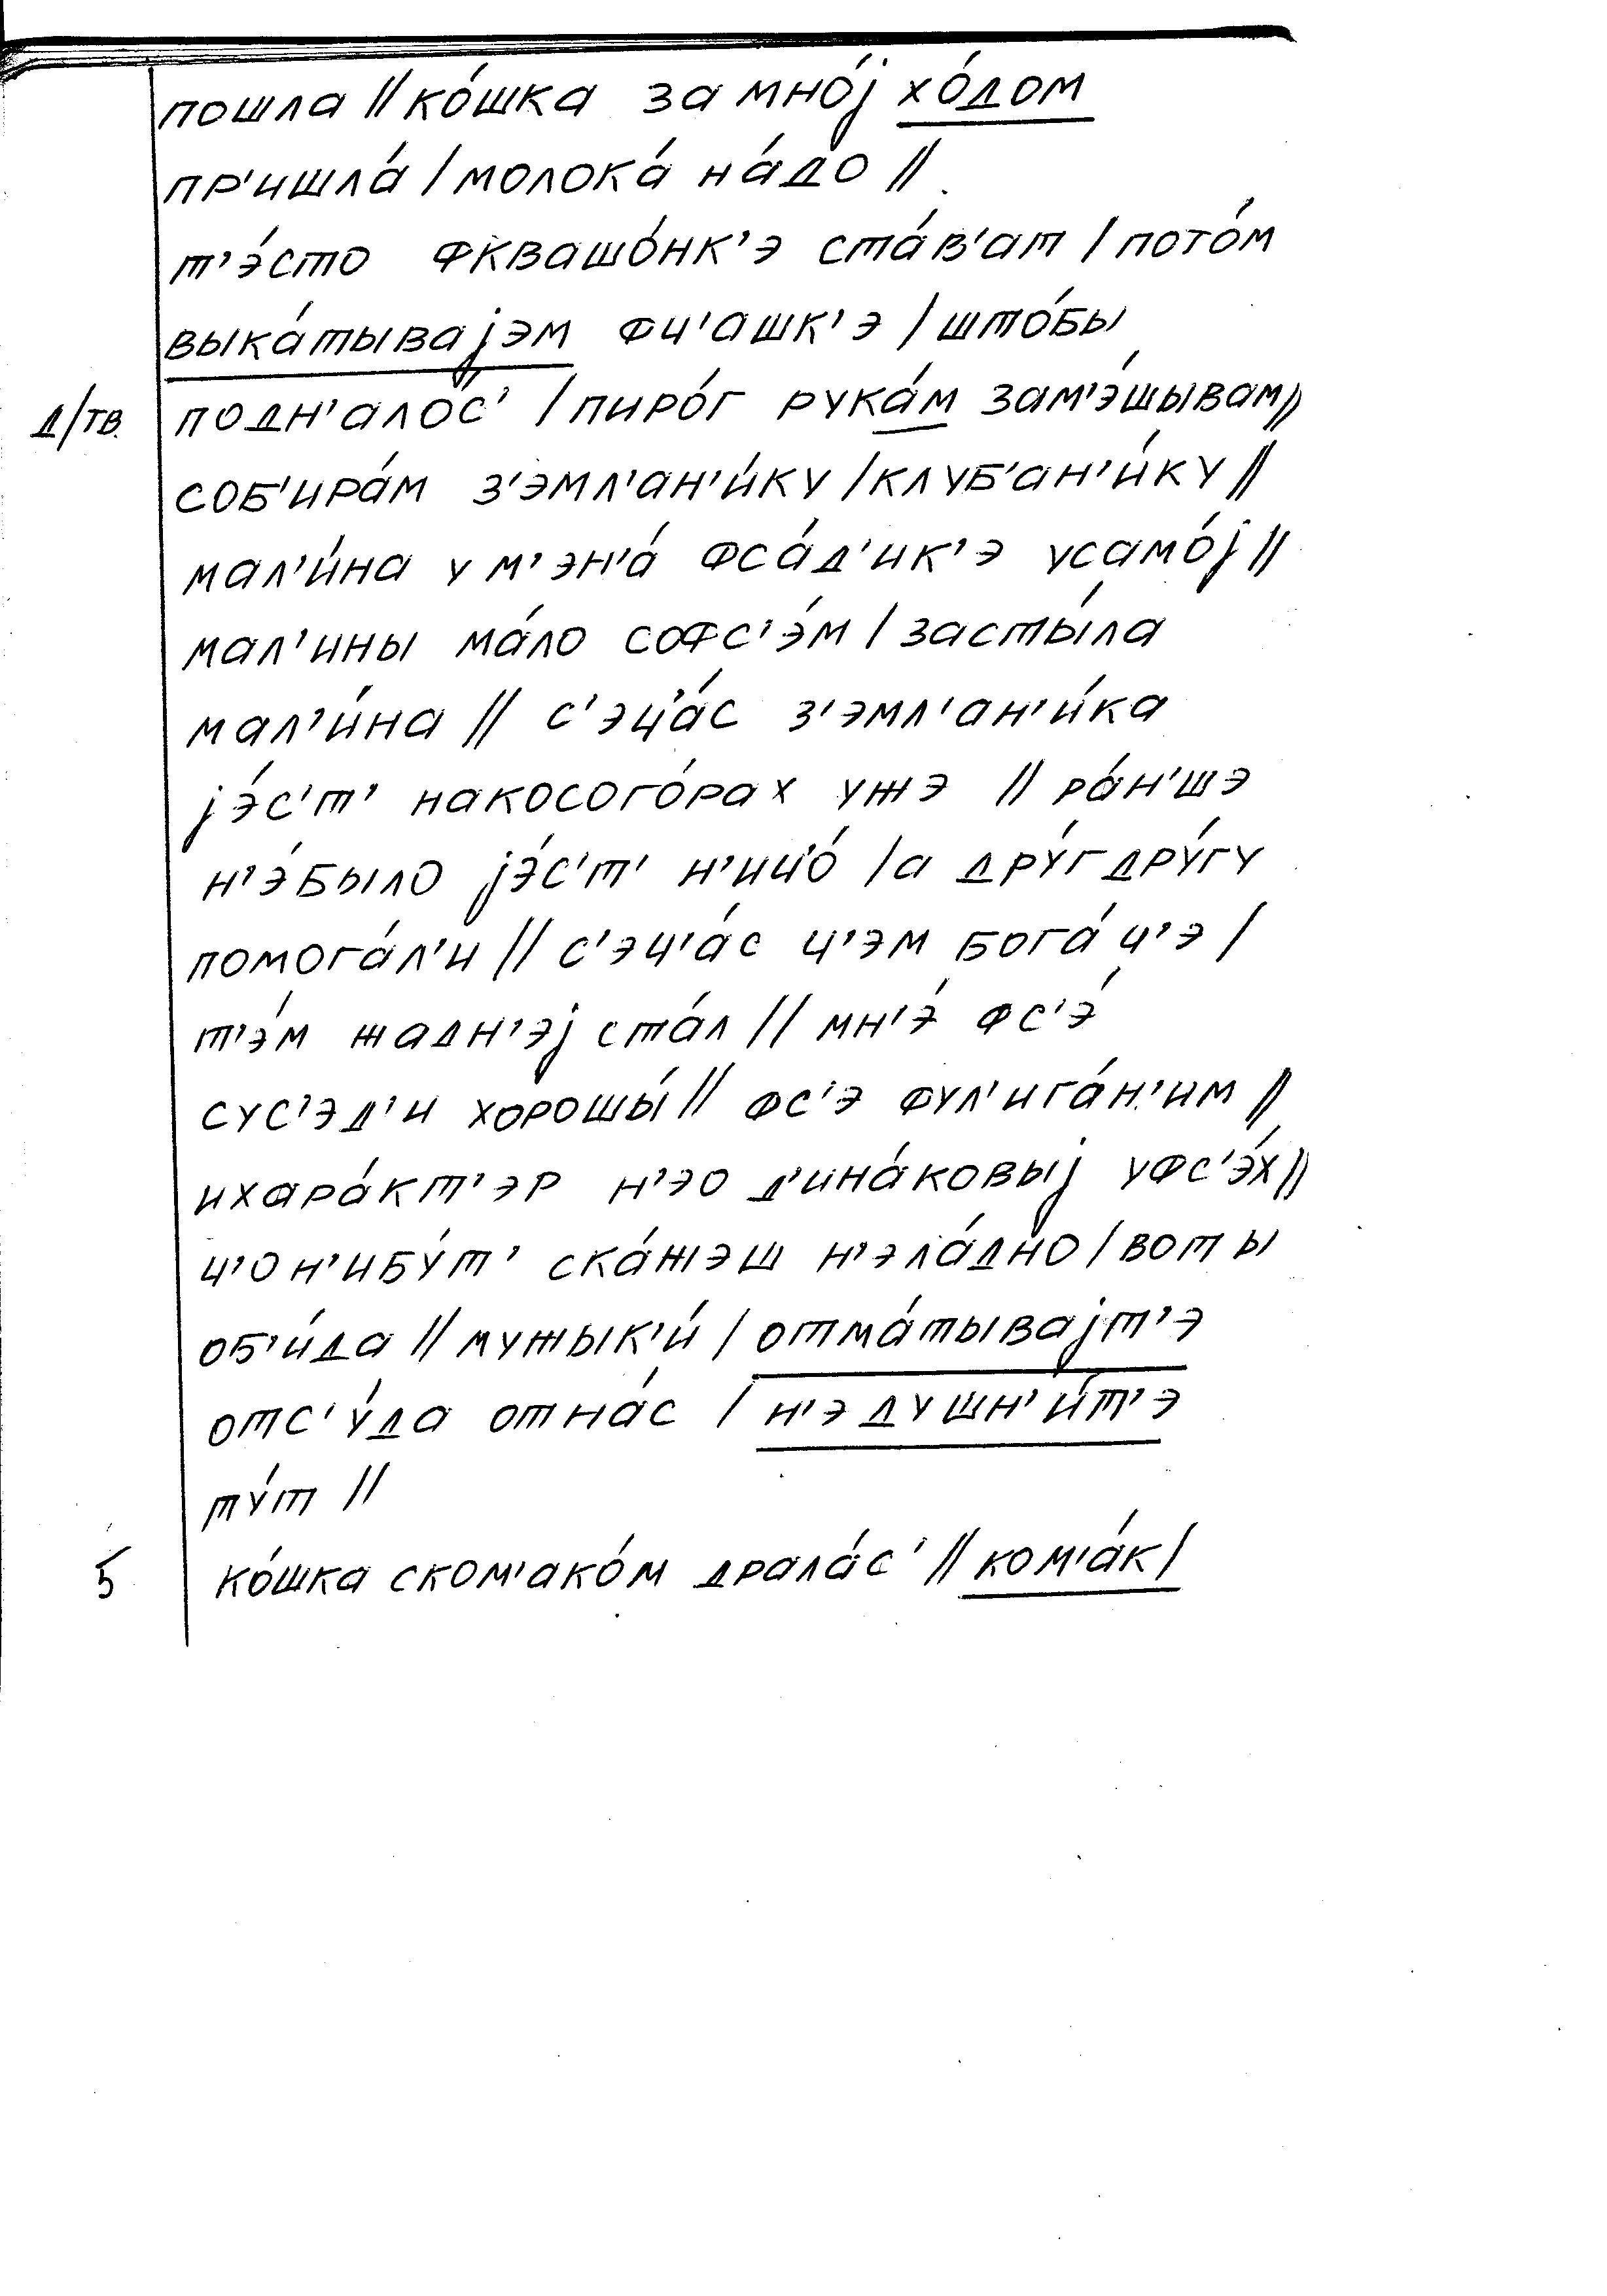 пошла // ко́шка за мно́j хо́дом
пр'ишла́ / молока́ на́до //
т'э́сто фквашо́нк'э ста́в'ат / пото́м
выка́тываjэм фч'ашк'э / што́бы
д/тв. подн'ало́с' / пиро́г рука́м зам'э́шывам //
соб'ира́м з'эмл'ан'и́ку / клуб'ан'и́ку //
мал'и́на у м'эн'а́ фса́д'ик'э усамо́j //
мал'ины ма́ло софс'э́м / засты́ла
мал'и́на // с'эч'а́с з'эмл'ан'и́ка
jэ́с'т' накосого́рах ужэ // ра́н'шэ
н'э́было jэ́с'т' н'ич'о́ / а дру́г дру́гу
помога́л'и // с'эч'а́с ч'эм бога́ч'э /
т'э́м жадн'эj ста́л // мн'э́ фс'э́
сус'эд'и хорошы́ // фс'э фул'ига́н'им //
ихара́кт'эр н'эо д'ина́ковыj уфс'э́х //
ч'о н'ибу́т' ска́жэш н'эла́дно / вот ы
об'и́да // мужык'и́ / отма́тываjт'э
отс'у́да отна́с / н'э душн'и́т'э
ту́т //
5 ко́шка ском'ако́м драла́с' // ком'а́к /